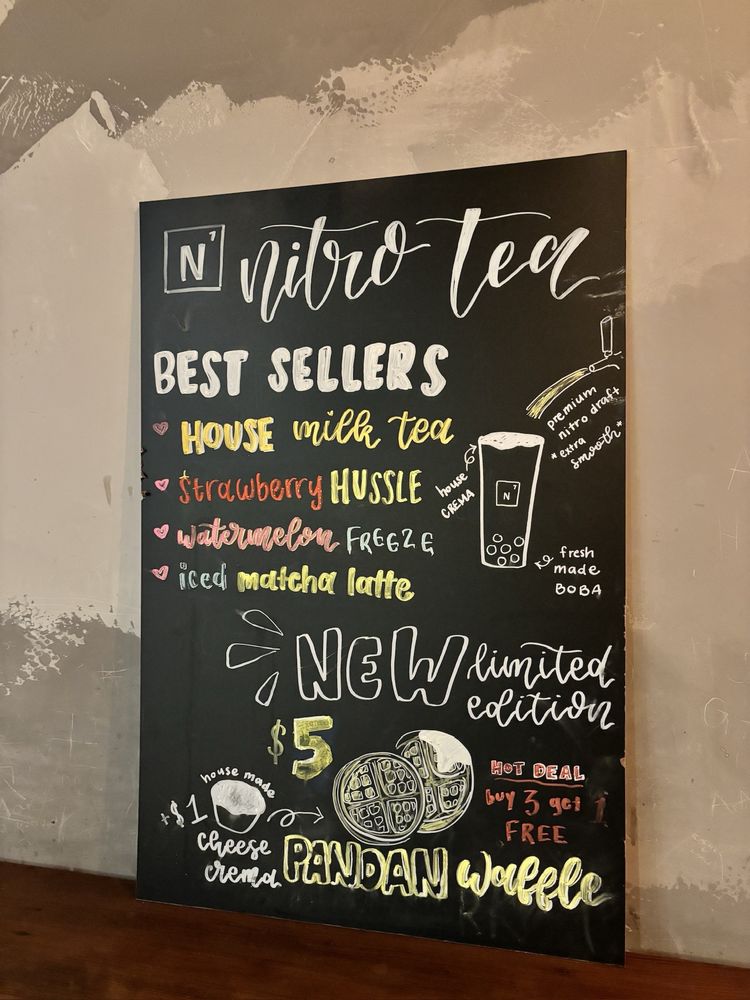 N7 nitro tea
BEST SELLERS
HOUSE milk tea
Strawberry HUSSLE
watermelon FREEZE
iced matcha latte
premium
nitro draft
*extra
smooth*
house
CREMA
N7
fresh
made
BOBA
NEW limited
edition
$5
house made
+$1
cheese
crema
HOT DEAL
buy 3 get 1
FREE
PANDAN waffle